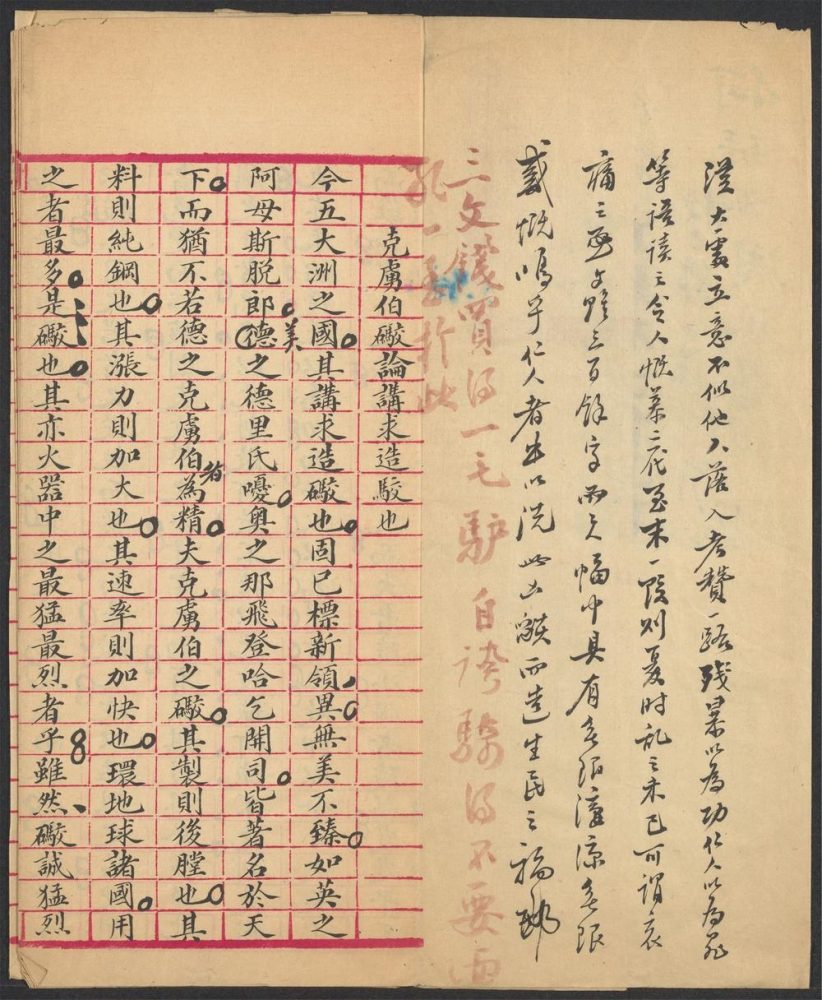 立意不似他人落入考贊一路殘暴以為功仁人以為
等語讀之令人慨慕二發至末一段則憂時亂之未已可謂哀
痛之至文雖三百餘字而尺幅中具有無限淒涼無限
感慨嗚乎仁人者出以洗此而造生民之福耶
三文錢買得一毛驢自誇騎得不要
克虜伯礮論講求造駮也
今五大洲之國其講求造礮也固已標新領異無美不臻如英之
阿母斯脫郎德美之德里氏嚘奧之那飛登哈乞開司皆著名於天
下而猶不若德之克虜伯為者精夫克虜伯之礮其製則後膛也其
料則純鋼也其漲力則加大也其速率則加快也環地球諸國用
之者最多是礮也其亦火器中之最猛最烈者乎雖然礮誠猛烈